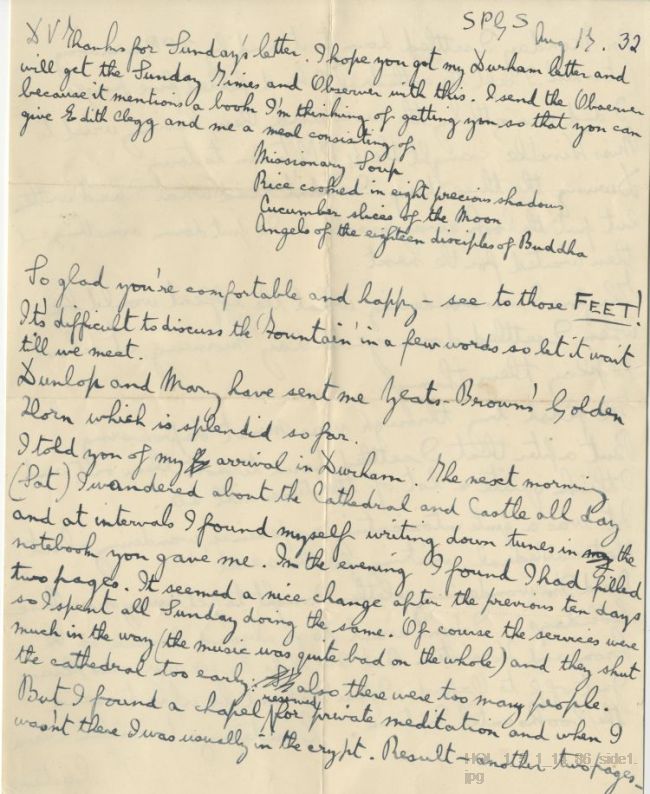 SPGS Aug 15. 32
D V Thanks for Sunday's letter. I hope you got my Durham letter and
will get the Sunday Times and Observer with this. I send the Observer
because it mentions a book I'm thinking of getting you so that you can
give Edith Clegg and me a meal consisting of
Missionary Soup
Rice cooked in eight precious shadows
Cucumber slices of the Moon
Angels of the eighteen disciples of Buddha
So glad you're comfortable and happy – see to those FEET!
It's difficult to discuss the 'Fountain' in a few words so let it wait
till we meet.
Dunlop and Mary have sent me Yeats-Brown's Golden
Horn which is splendid so far.
I told you of my arrival in Durham. The next morning
(Sat) I wandered about the Cathedral and Castle all day
and at intervals I found myself writing down tunes in my the
notebook you gave me. In the evening I found I had filled
two pages. It seemed a nice change after the previous ten days
so I spent all Sunday doing the same. Of course the services were
much in the way (the music was quite bad on the whole) and they shut
the cathedral too early: also there were too many people.
But I found a chapel reserved for private meditation and when I
wasn't there I was usually in the crypt. Result – another two pages –
HOL_1_5_1_11_86_side1.
jpg